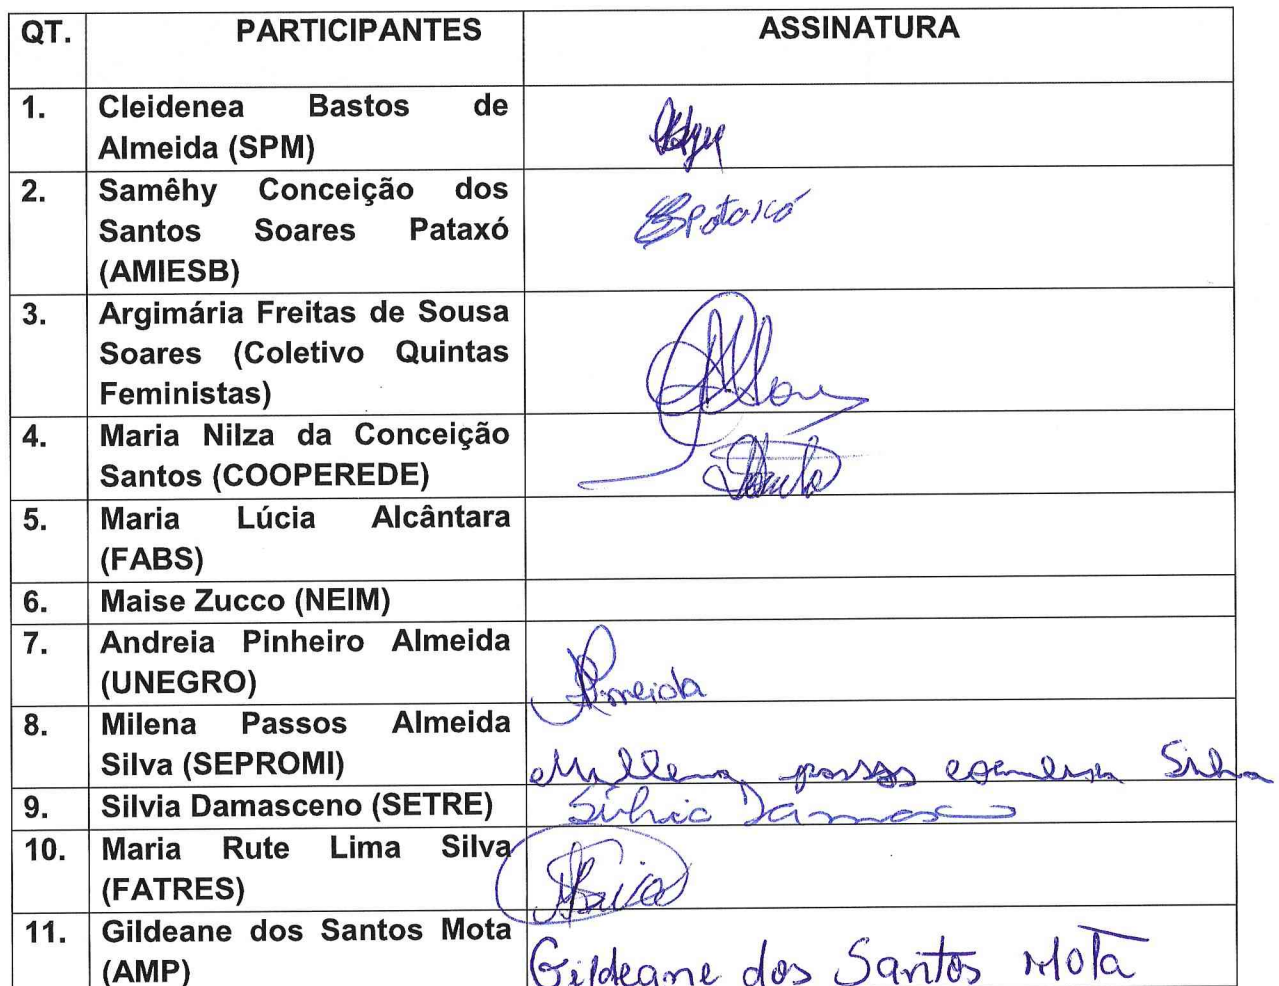 QT. PARTICIPANTES ASSINATURA
1. Cleidenea Bastos de
Almeida (SPM)
2. Samêhy Conceição dos
Santos Soares Pataxó
(AMIESB)
3. Argimária Freitas de Sousa
Soares (Coletivo Quintas
Feministas)
4. Maria Nilza da Conceição
Santos (COOPEREDE)
5. Maria Lúcia Alcântara
(FABS)
6. Maise Zucco (NEIM)
7. Andreia Pinheiro Almeida
(UNEGRO)
Almeida
8. Milena Passos Almeida
Silva (SEPROMI)
passos Silva
9. Silvia Damasceno (SETRE)
10. Maria Rute Lima Silva
(FATRES)
11. Gildeane dos Santos Mota
(AMP)
Gildeane dos Santos Mota